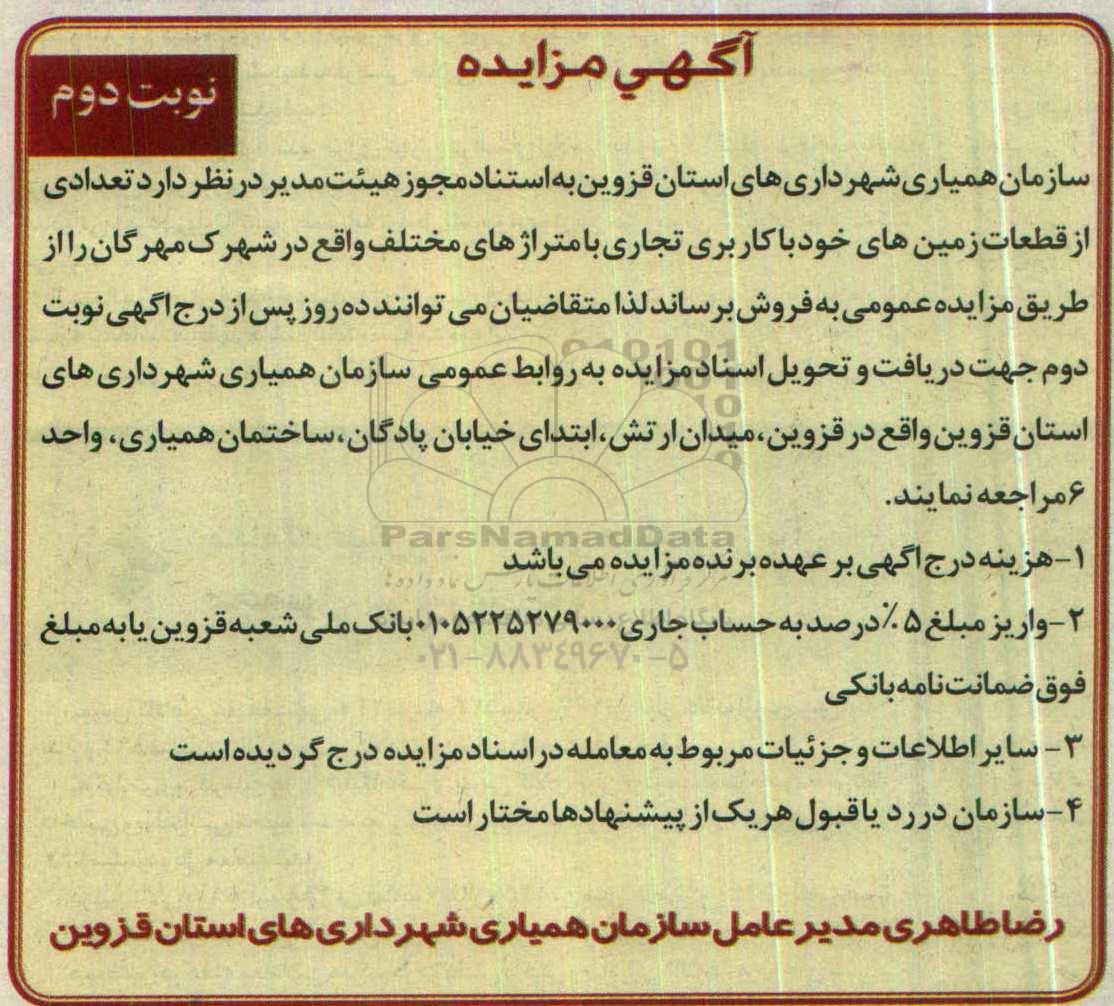 آگهي مزایده
نوبت دوم
سازمان همیاری شهرداری های استان قزوین به استناد مجوز هیئت مدیر در نظر دارد تعدادی
از قطعات زمین های خود با کاربری تجاری با متراژ های مختلف واقع در شهرک مهرگان را از
طریق مزایده عمومی به فروش برساند لذا متقاضیان می توانند ده روز پس از درج اگهی نوبت
دوم جهت دریافت و تحویل اسناد مزایده به روابط عمومی سازمان همیاری شهرداری های
استان قزوین واقع در قزوین، میدان ارتش، ابتدای خیابان پادگان، ساختمان همیاری، واحد
۶ مراجعه نمایند.
ParsNamadData
۱- هزینه درج اگهی بر عهده برنده مزایده می باشد
۲- واریز مبلغ ۵٪ درصد به حساب جاری ۰۱۰۵۲۲۵۲۷۹۰۰۰ بانک ملی شعبه قزوین یا به مبلغ
۰۲۱-۸۸۳۴۹۶۷۰-۵
فوق ضمانت نامه بانکی
۳- سایر اطلاعات و جزئیات مربوط به معامله در اسناد مزایده درج گردیده است
۴- سازمان در رد یا قبول هر یک از پیشنهادها مختار است
رضا طاهری مدیر عامل سازمان همیاری شهرداری های استان قزوین